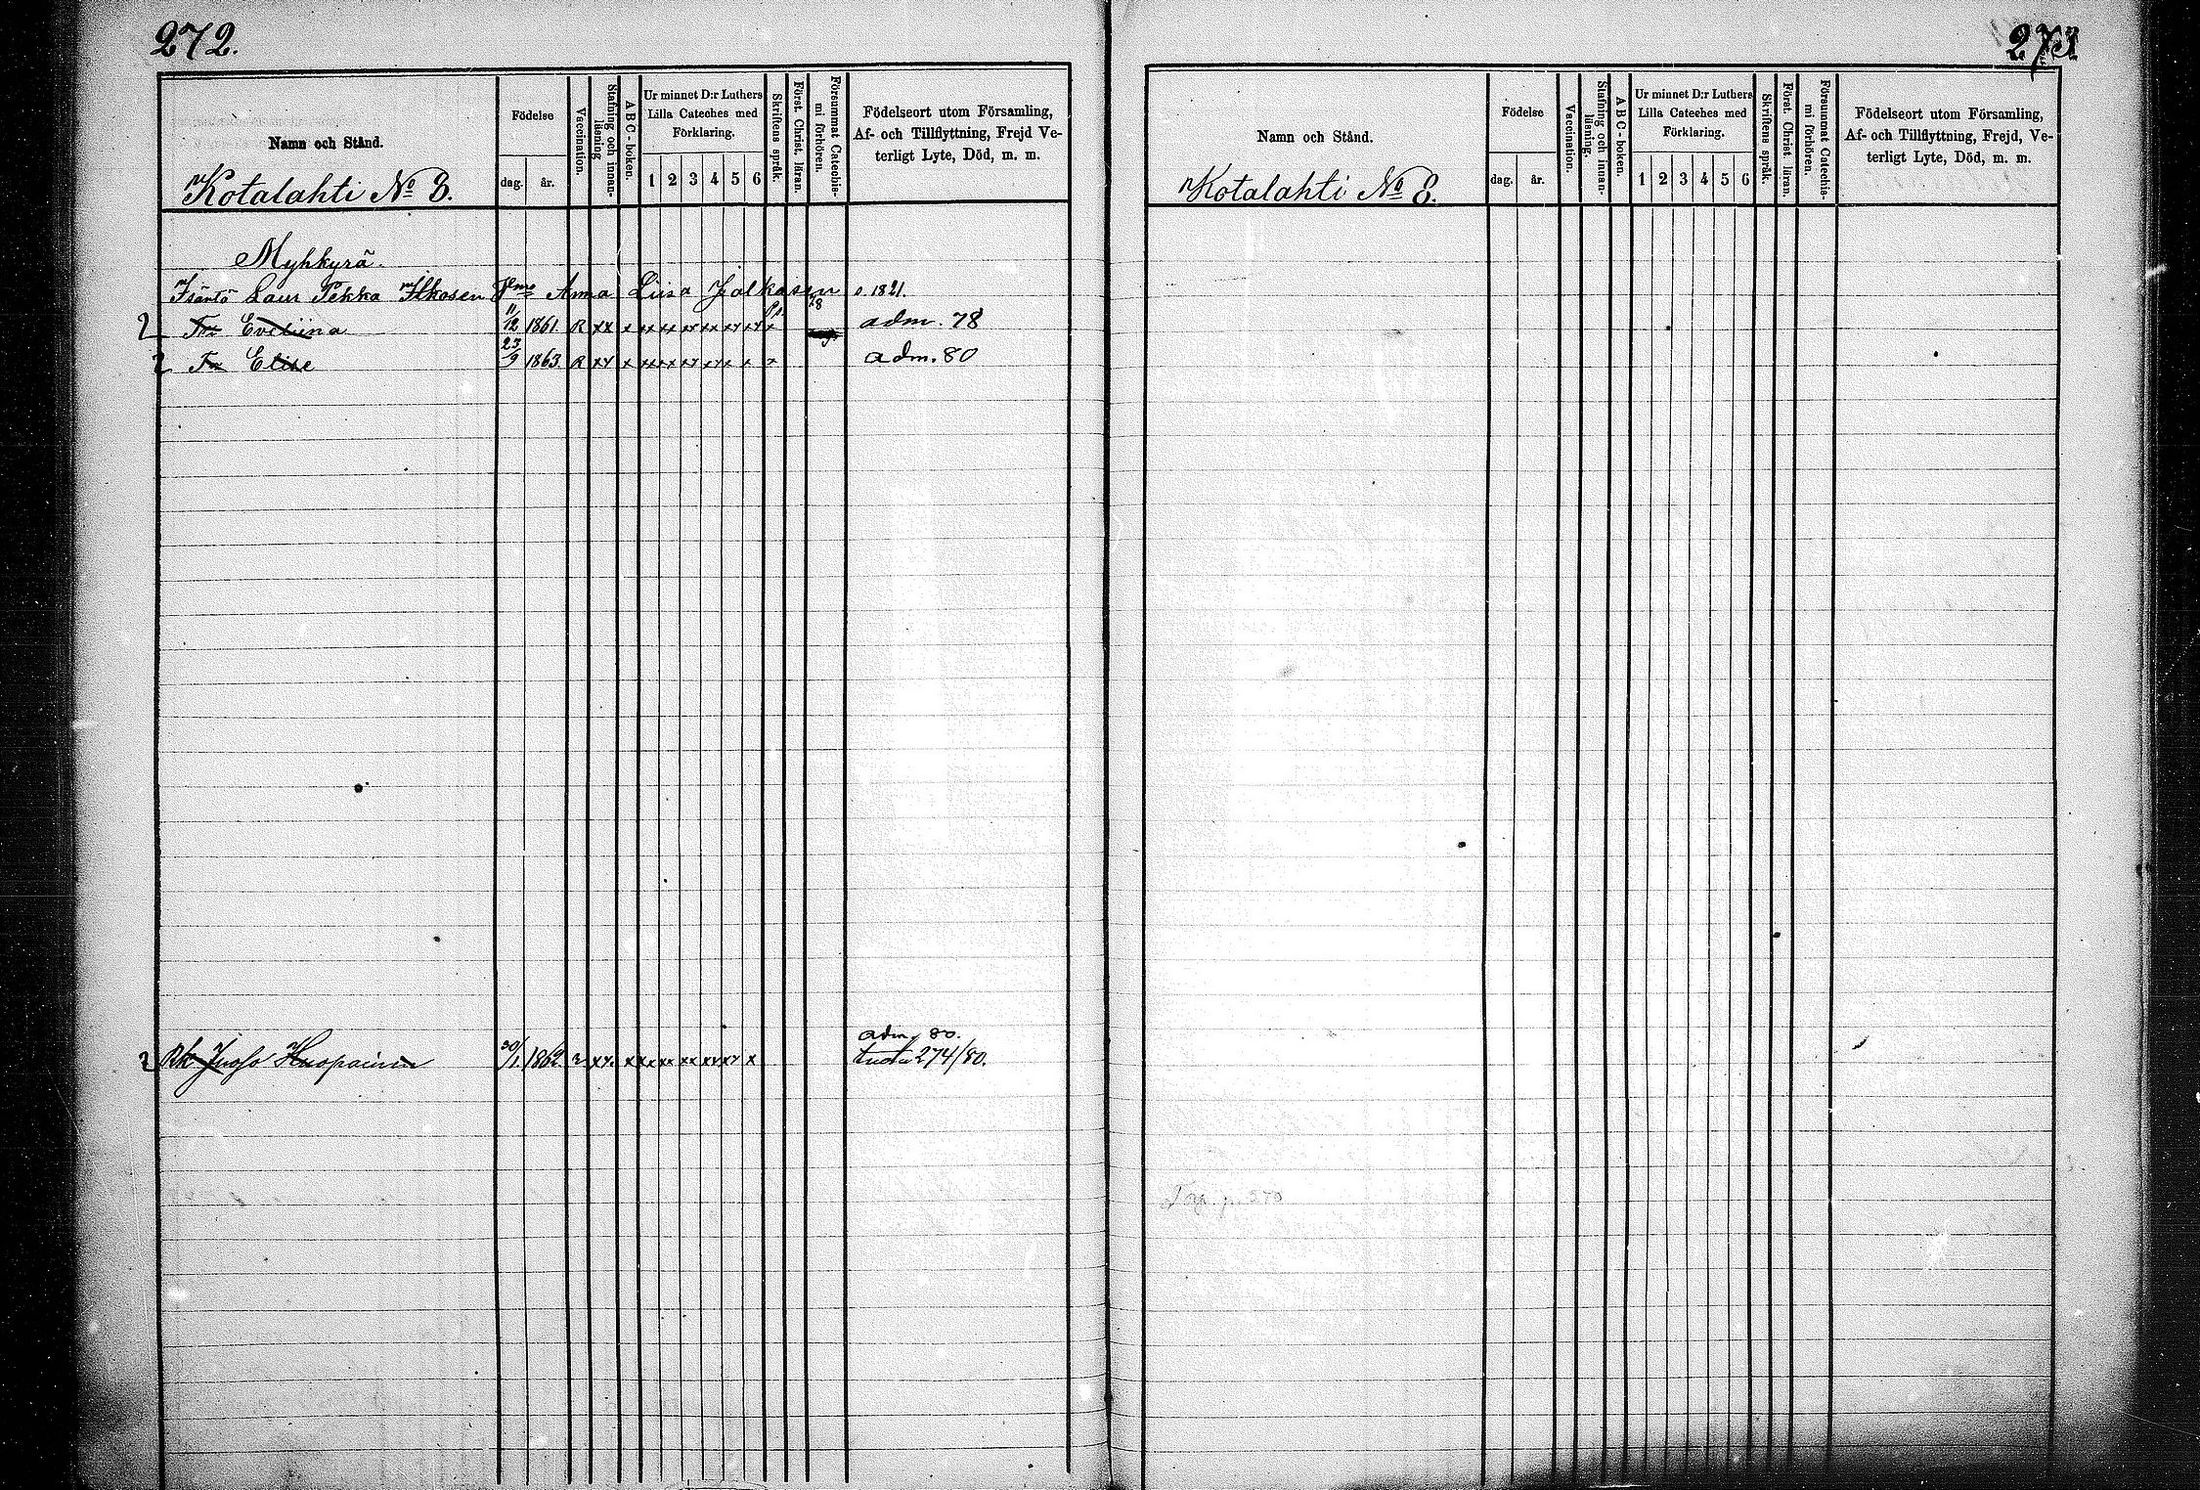 272.
Namn och Stånd.
Födelse
dag. år.
Vaccination.
Stafning och innan-
läsning
A B C - boken.
Ur minnet D:r Luthers
Lilla Cateches med
Förklaring.
1 2 3 4 5 6
Skriftens språk.
Först. Christ. läran.
Försummat Catechis-
mi förhören.
Födelseort utom Församling,
Af- och Tillflyttning, Frejd Ve-
terligt Lyte, Död, m. m.
Kotalahti No 8.
Myhkyrä.
Isäntä Laur Pekka Ikosen Anna Liisa Jalkasen s. 1821.
2 Tr Eveliina 11/12 1861. R xx x xx xx xx xx xx x adm. 78
2 Tr Elise 23/9 1863. R xx x xx xx xx xx x x x adm. 80
adm. 80.
2 Rk Juoso Huopainen 30/1. 1862. xx. x xx xx xx xx x 274/80.
273
Namn och Stånd.
Födelse
dag. år.
Vaccination.
Stafning och innan-
läsning.
A B C - boken.
Ur minnet D:r Luthers
Lilla Cateches med
Förklaring.
1 2 3 4 5 6
Skriftens språk.
Först. Christ läran.
Försummat Catechis-
mi förhören.
Födelseort utom Församling,
Af- och Tillflyttning, Frejd, Ve-
terligt Lyte, Död, m. m.
Kotalahti No 8.